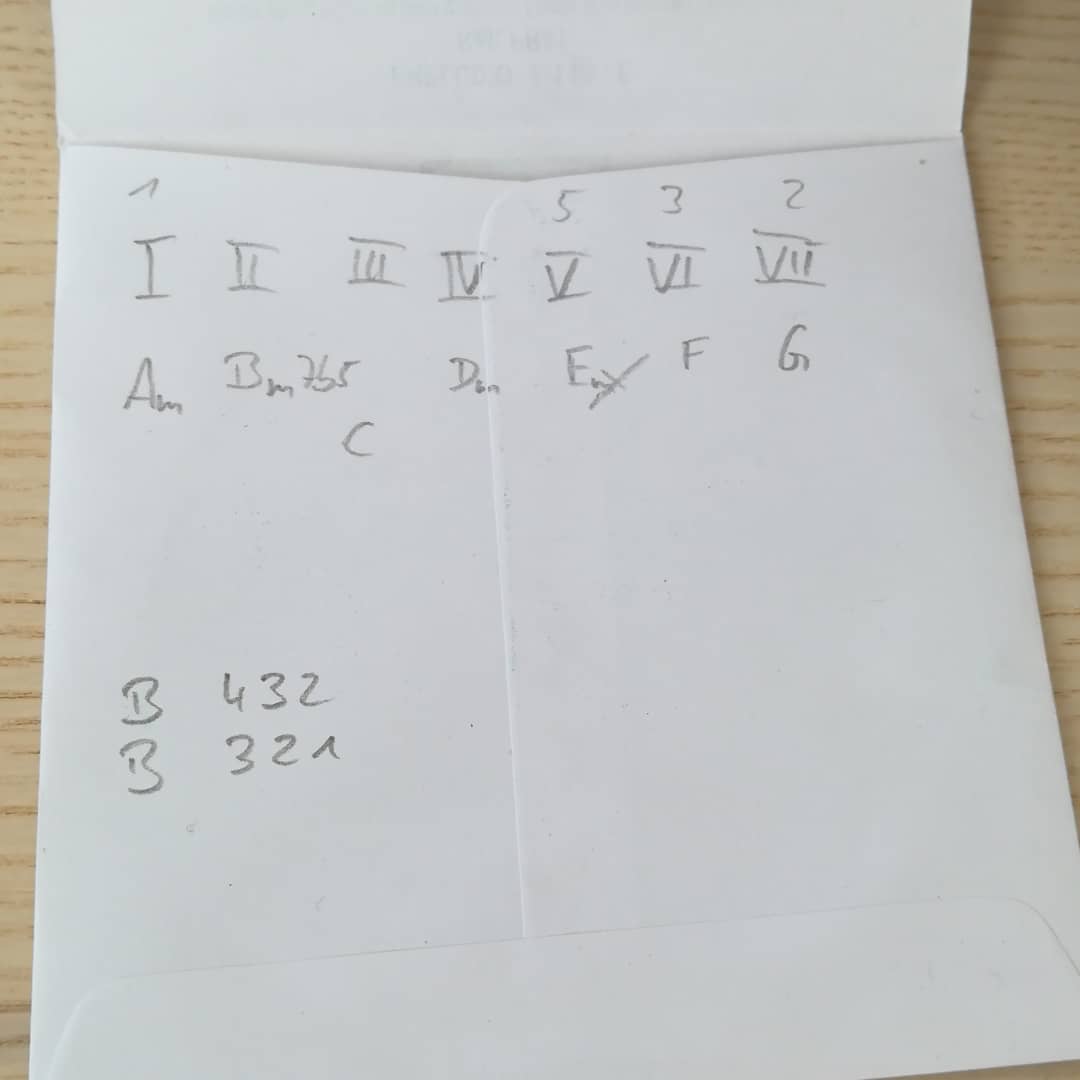 1 5 3 2
I II III IV V VI VII
Am Bm7b5 Dm Em F G
C
B 432
B 321